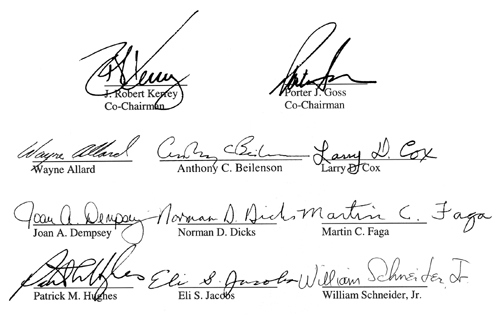 J. Robert Kerrey
Co-Chairman
Porter J. Goss
Co-Chairman
Wayne Allard
Wayne Allard
Anthony C. Beilenson
Anthony C Beilenson
Larry D. Cox
Larry D. Cox
Joan A. Dempsey
Joan A. Dempsey
Norman D. Dicks
Norman D. Dicks
Martin C. Faga
Martin C. Faga
Patrick M. Hughes
Eli S. Jacobs
Eli S. Jacobs
William Schneider, Jr.
William Schneider, Jr.